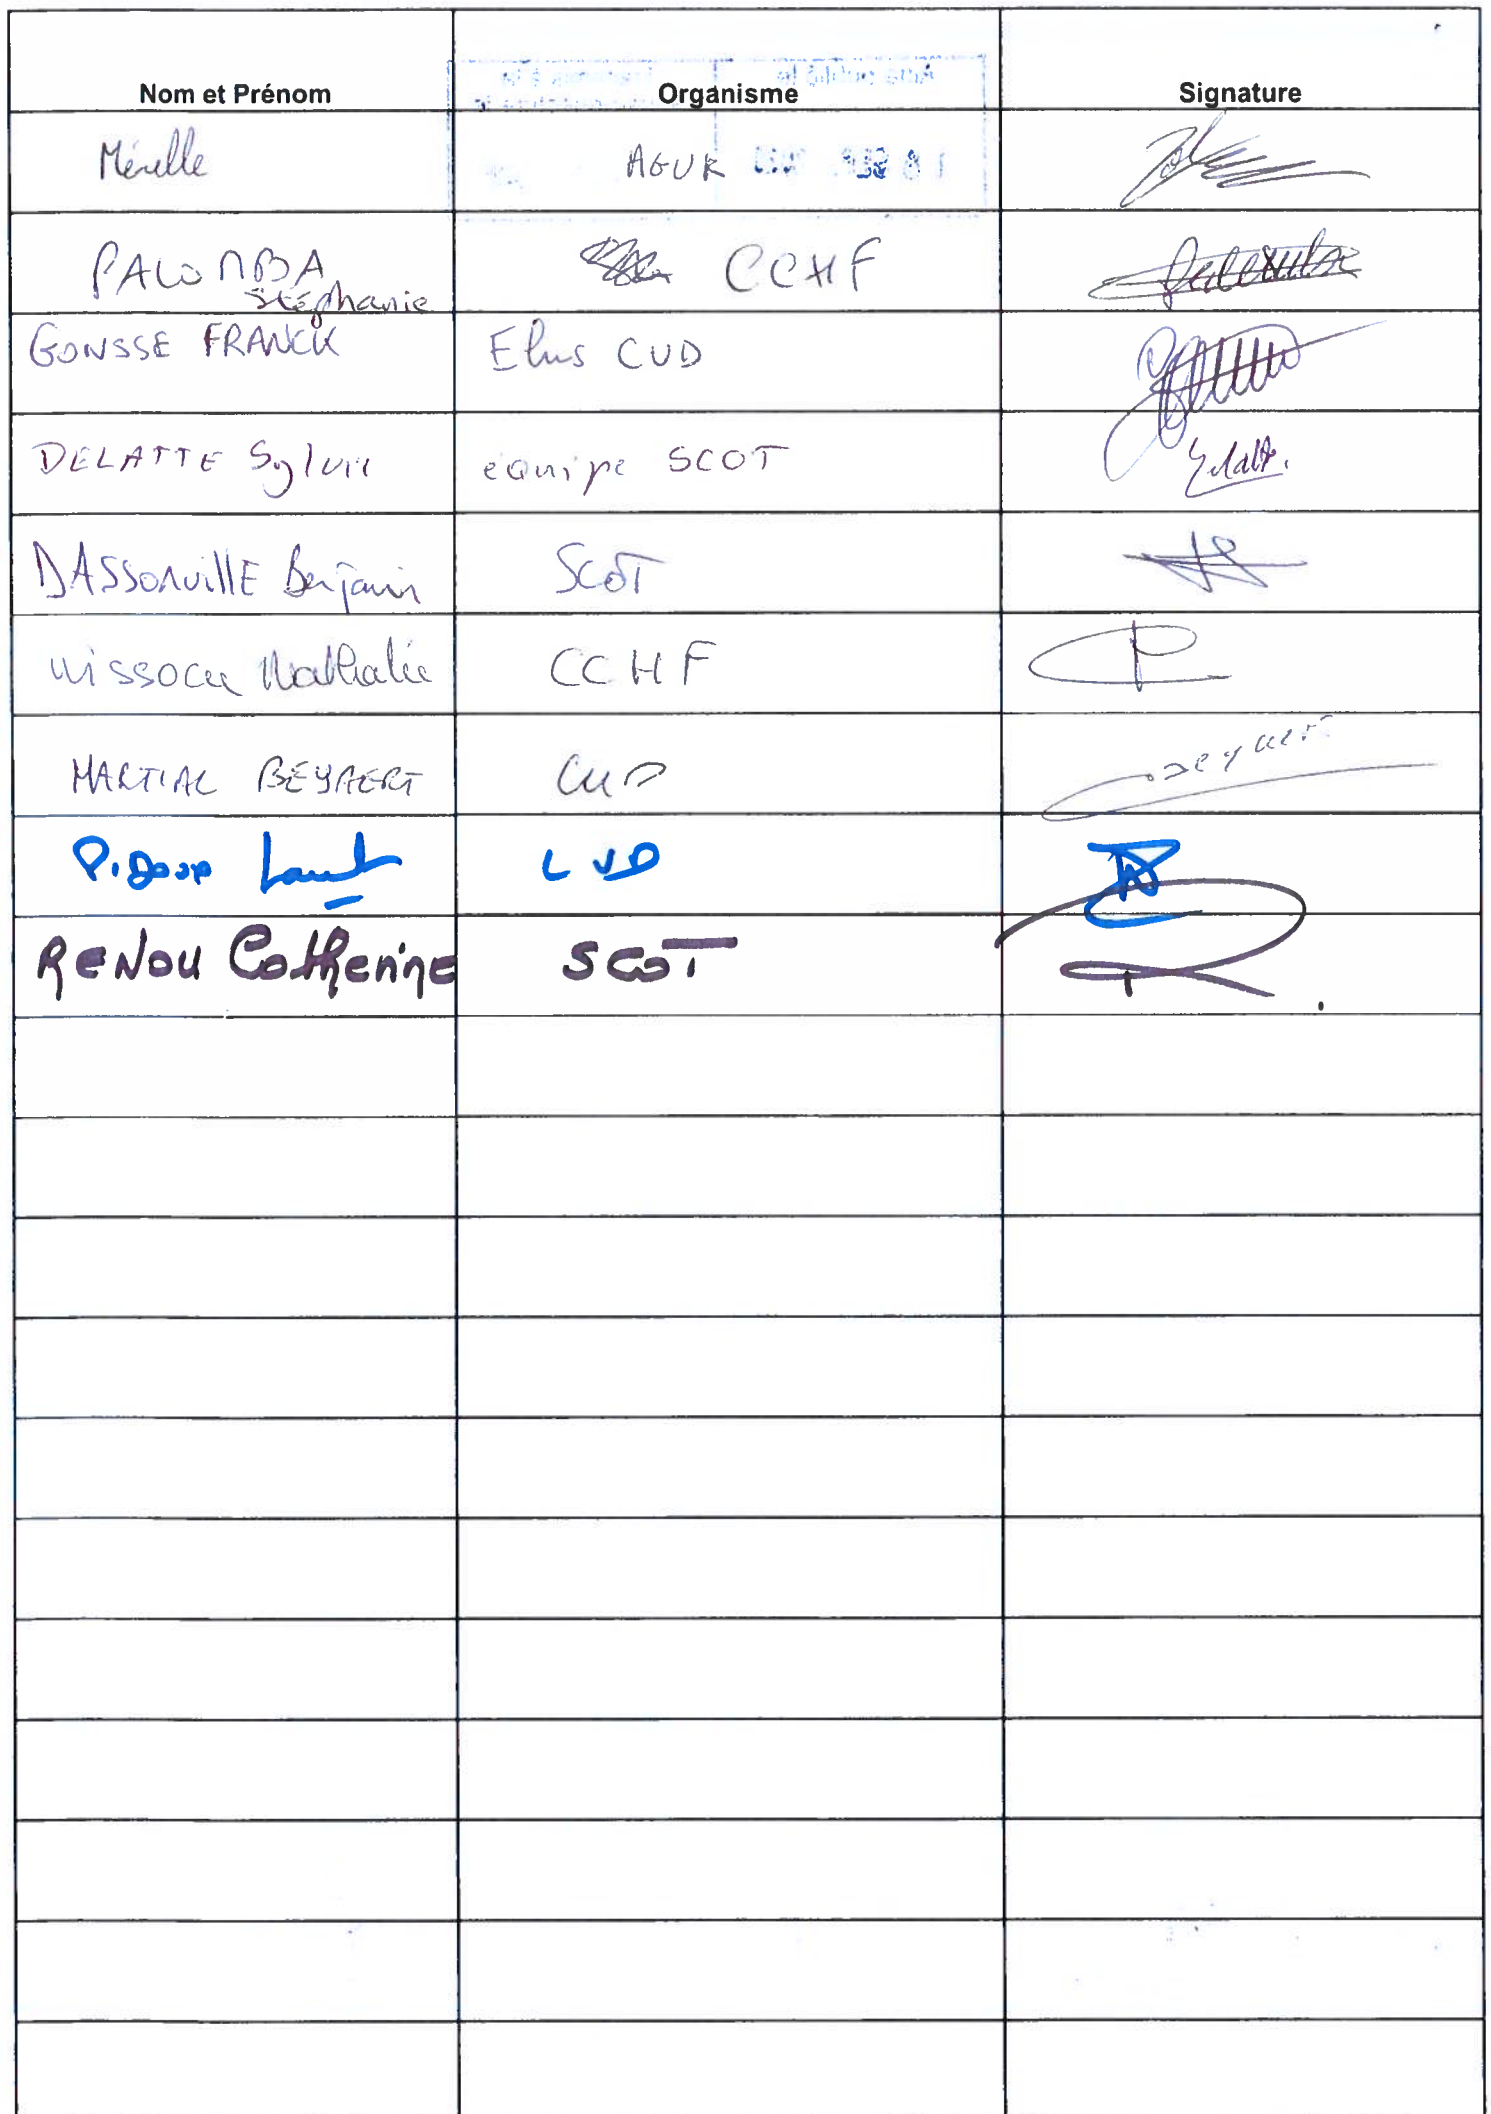 Nom et Prénom Organisme Signature
Mérelle AGUR
PALOMBA CCHF
Stéphanie
GONSSE FRANCK Elus CUD
DELATTE Sylvie équipe SCOT
DASSONVILLE Benjamin SCOT
Nathalie CCHF
MARTIAL BEYAERT CUD
CUD
RENOU Catherine SCOT